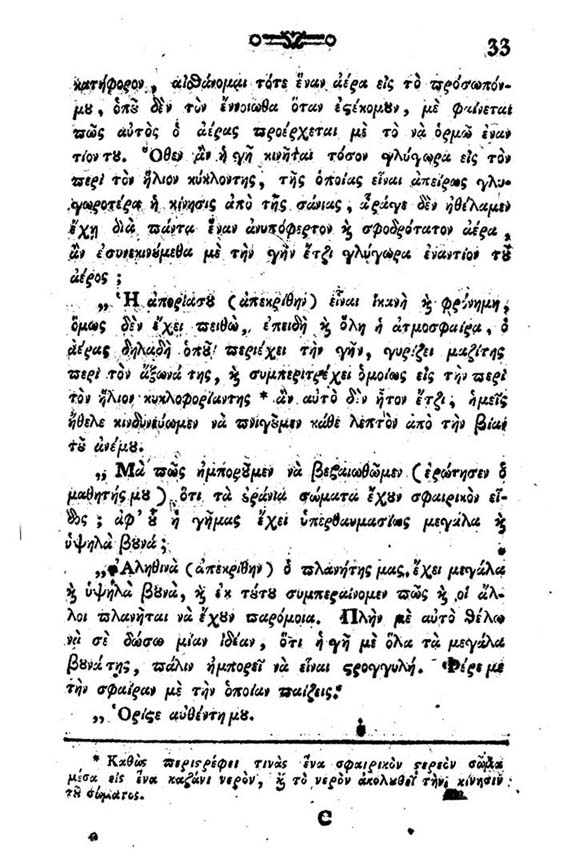 33
κατήφορον, αἰσθάνομαι τότε ἕναν ἀέρα εἰς τὸ πρόσωπόν-
μȣ, ὁπȣ̃ δὲν τὸν ἔννοιωθα ὅταν ἐςέκομȣν, μὲ φαίνεται
πῶς αὐτὸς ὁ ἀέρας προέρχεται μὲ τὸ νὰ ὁρμῶ ἐναν
τίοντȣ. Ὅθεν ἂν ἡ γῆ κινῆται τόσον γλύγωρα εἰς τὸν
περὶ τὸν ἥλιον κύκλοντης, τῆς ὁποίας εἶναι ἀπείρως γλυ-
γωροτέρα ἡ κίνησις ἀπὸ τῆς σάνιας, ἆράγε δὲν ἠθέλαμεν
ἔχῃ διὰ πάντα ἕναν ἀνυπόφερτον ϗ σφοδρότατον ἀέρα,
ἂν ἐσυνεκινούμεθα μὲ τὴν γῆν ἔτζι γλύγωρα ἐναντίον τȣ̃
ἀέρος;
„ Ἡ ἀπορίασȣ (ἀπεκρίθην) εἶναι ἱκανὴ ϗ φρόνημη,
ὅμως δὲν ἔχει πειθὼ, ἐπειδὴ ϗ ὅλη ἡ ἀτμοσφαίρα, ὁ
ἀέρας δηλαδὴ ὁπȣ̃ περιέχει τὴν γῆν, γυρίζει μαζίτης
περὶ τὸν ἄξωνά της, ϗ συμπεριτρέχει ὁμοίως εἰς τὴν περὶ
τὸν ἥλιον κυκλοφορίαντης * ἂν αὐτὸ δὲν ἦτον ἔτζι, ἡμεῖς
ἤθελε κινδυνεύωμεν νὰ πνιγȣ̃μεν κάθε λεπτὸν ἀπὸ τὴν βίαν
τȣ̃ ἀνέμȣ.
„ Μὰ πῶς ἠμπορȣ̃μεν νὰ βεβαιωθῶμεν (ἐρώτησεν ὁ
μαθητής μȣ) ὅτι τὰ ȣ̓ράνια σώματα ἔχȣν σφαιρικὸν εἶ-
δος; ἀφ' ȣ̃̔ ἡ γῆμας ἔχει ὑπερθαυμασίως μεγάλα ϗ
ὑψηλὰ βȣνά;
„ Ἀληθινὰ (ἀπεκρίθην) ὁ πλανήτης μας ἔχει μεγάλα
ϗ ὑψηλὰ βȣνὰ, ϗ ἐκ τȣ́τȣ συμπεραίνομεν πῶς ϗ οἱ ἄλ-
λοι πλανῆται νὰ ἔχȣν παρόμοια. Πλὴν μὲ αὐτὸ θέλω
νὰ σὲ δώσω μίαν ἰδέαν, ὅτι ἡ γῆ μὲ ὅλα τὰ μεγάλα
βȣνά της, πάλιν ἠμπορεῖ νὰ εἶναι ςρογγυλή. Φέρε με
τὴν σφαῖραν μὲ τὴν ὁποίαν παίζεις.
„ Ὅριζε αὐθέντη μȣ.
* Καθὼς περιςρέφει τινὰς ἕνα σφαιρικὸν ςερεὸν σῶμα
μέσα εἰς ἕνα καζάνι νερὸν, ϗ τὸ νερὸν ἀκολȣθεῖ τὴν κίνησιν
τȣ̃ σώματος.
C